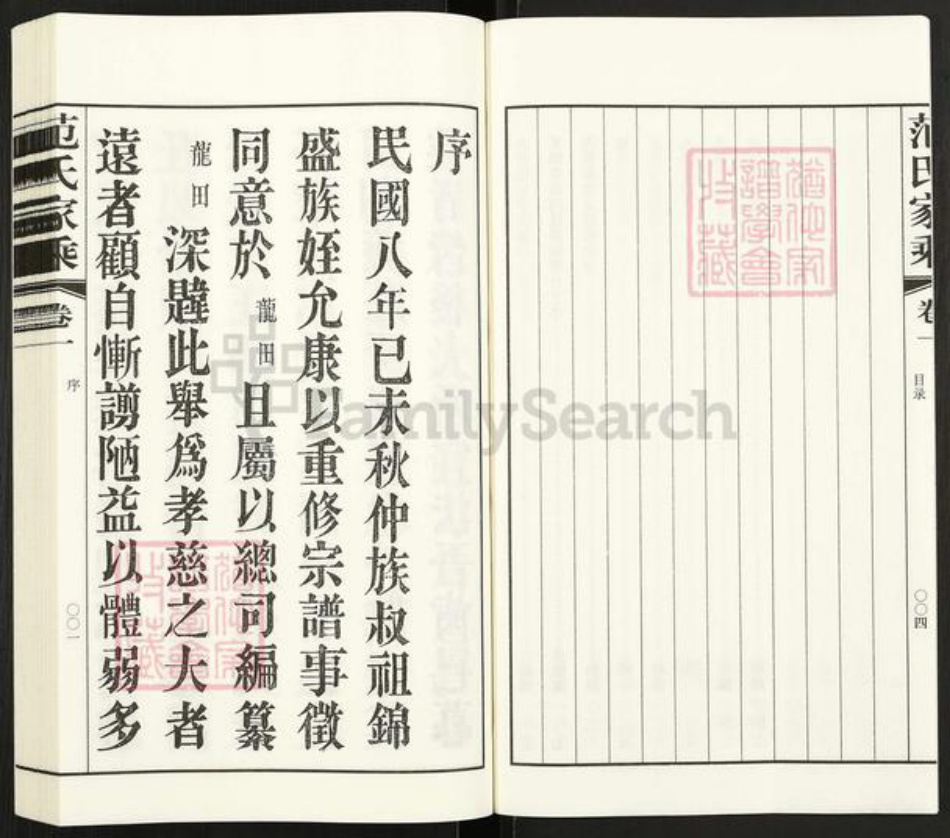 范氏家乘
卷一
目录
〇〇四
序
民國八年已未秋仲族叔祖錦
盛族姪允康以重修宗譜事徵
同意於龍田且屬以總司編纂
龍田深韙此舉為孝慈之大者
遠者顧自慚謭陋益以體弱多
范氏家乘
卷一
序
〇〇一
FamilySearch